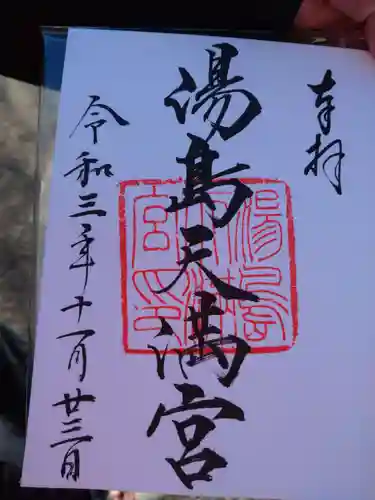 奉拝
湯島天満宮
令和三年十一月廿三日
湯島天満宮印